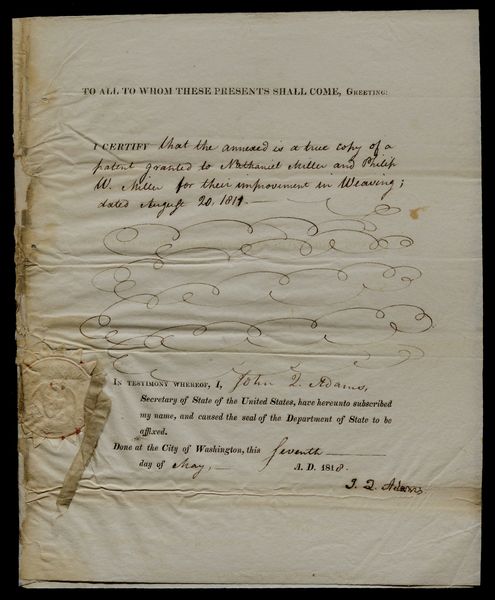 TO ALL TO WHOM THESE PRESENTS SHALL COME, GREETING:
I CERTIFY that the annexed is a true copy of a
patent granted to Nathaniel Miller and Philip
W. Miller for their improvement in Weaving;
dated August 20, 1811.
IN TESTIMONY WHEREOF, I, John Q. Adams,
Secretary of State of the United States, have hereunto subscribed
my name, and caused the seal of the Department of State to be
affixed.
Done at the City of Washington, this seventh
day of May, A. D. 1818.
J. Q. Adams.